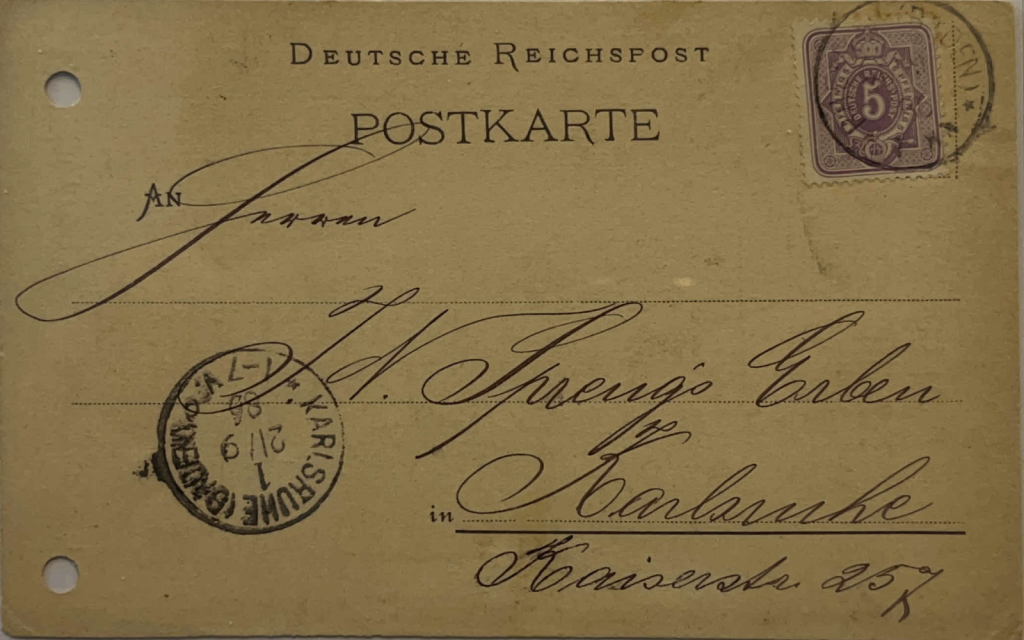 DEUTSCHE REICHSPOST
POSTKARTE
5
AN Herren
J. N Spreng's Erben
in Karlsruhe
Kaiserstr. 25
* KARLSRUHE (BADEN)
1
21/9
86
7-7 V.